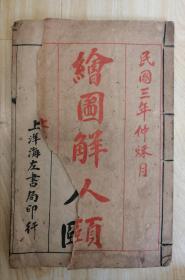 民國三年仲秌月
繪圖解人頤
上洋海左書局印行